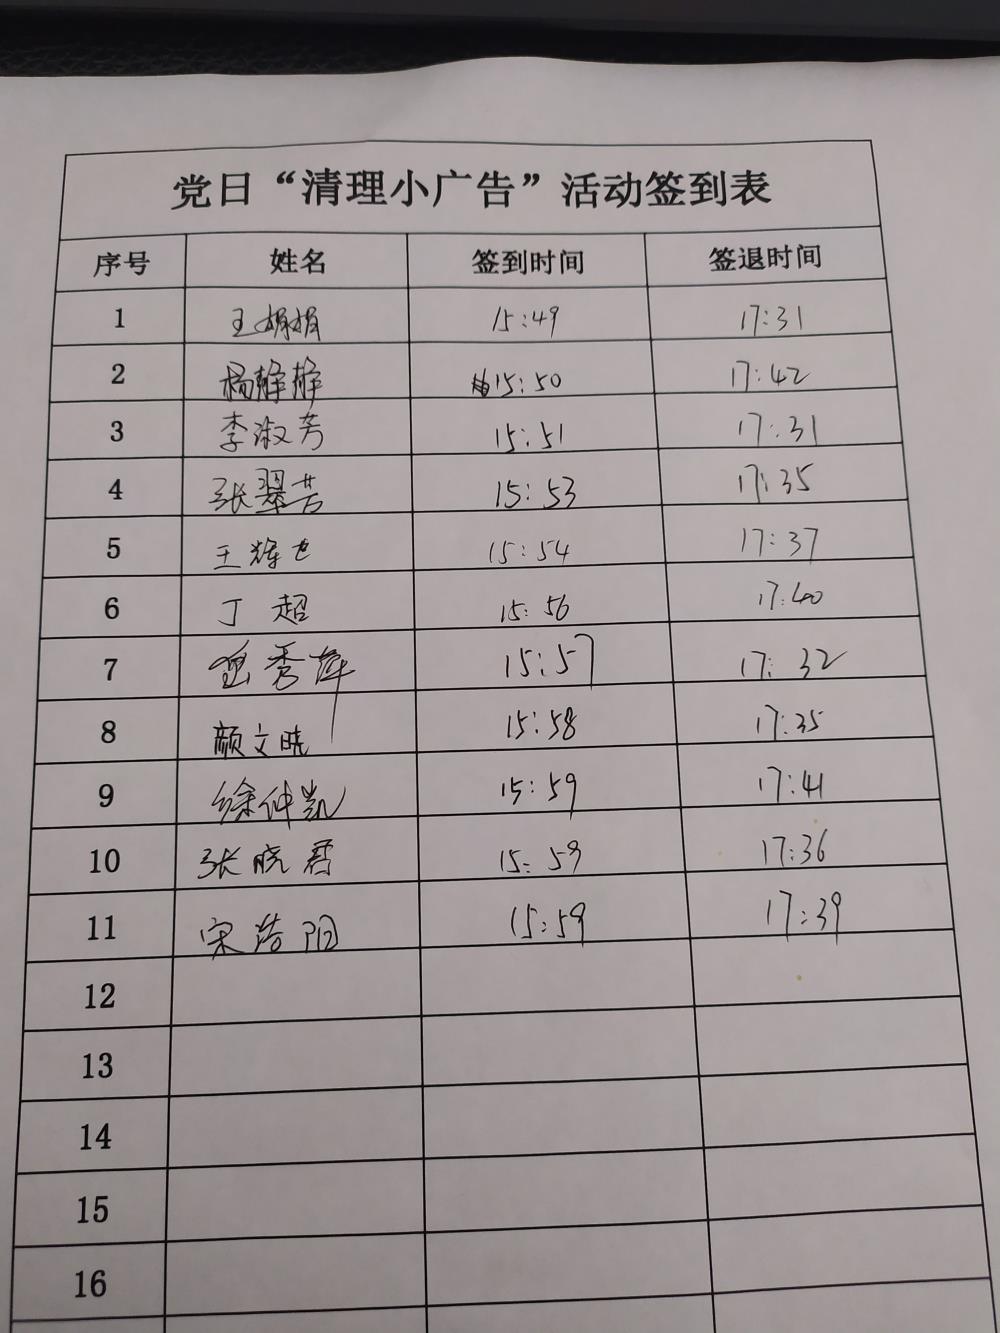 党日“清理小广告”活动签到表
序号 姓名 签到时间 签退时间
1 王娟娟 15:49 17:31
2 杨静静 15:50 17:42
3 李淑芳 15:51 17:31
4 张翠芳 15:53 17:35
5 王辉 15:54 17:37
6 丁超 15:56 17:40
7 秀萍 15:57 17:32
8 颜文晓 15:58 17:35
9 徐仲凯 15:59 17:41
10 张晓君 15:59 17:36
11 宋浩阳 15:59 17:39
12
13
14
15
16